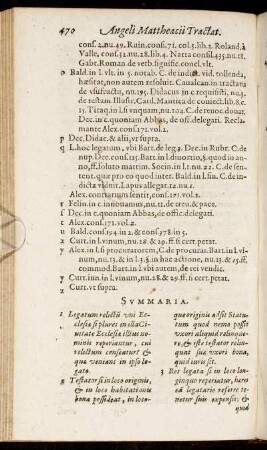 470 Angeli Mattheacij Tractat.
conf. 2. nu. 49. Ruin. conf. 71. col. 3. lib. 2. Roland. à
Valle, conf. 32. nu. 28. lib. 4. Natta consil. 435. nu. 18.
Gabr. Roman de verb. signific. concl. vlt.
o Bald. in l. vlt. in 5. notab. C. de indict. vid. tollenda,
hæsitat, non autem resoluit. Caualcan. in tractatu
de vsufructu, nu. 195. Didacus in c. requisisti, nu.
3. de testam.
Tiraq. in l. si vnquam, nu. 102. C. de reuoc. donat.
Dec. in c. quoniam Abbas, de off. delegati.
mante Alex. conf. 171. vol. 1.
p Dec. Didac. & alij, vt supra.
q L. hoc legatum, vbi Bart. de leg. 2. Dec. in Rubr. C. de
nup. Dec. conf. 125. Bart. in l. diuortio, §. quod in anno,
ff. soluto matrim. Socin. in l. 1. nu. 22. C. de sententi.
quæ pro eo quod inter. Bald. in l. fin. C. de indicta
viduit. Lapus allegat. 12. nu. 1.
r Alex. contrariam sentit, conf. 171. vol. 1.
r Felin. in c. in nouanum, nu. 11. de treu. & pace.
s Dec. in c. quoniam Abbas, de offic. delegati.
t Alex. conf. 171. vol. 2.
u Bald. conf. 194. in 2. & conf. 378. in 5.
x Curt. in l. vinum, nu. 28. & 29. ff. si cert. petat.
y Alex. in l. si procuratorem, C. de procurat. Bart. in l. vinum,
nu. 13. & in l. 3. §. in hac actione, nu. 13. & 15. ff.
commod. Bart. in l. vbi autem, de rei vendic.
y Curt. iun. in l. vinum, nu. 28. & 29. ff. si cert. petat.
z Curt. vt supra.
SVMMARIA.
1 Legatum relictũ vni Ecclesiæ
si plures in illa Ciuitate
Ecclesiæ illius nominis
reperiantur, cui
relictum censeatur &
quæ veniant in ipso legato.
2 Testator si in loco originis,
& in loco habitationis
bona possideat, in loco
que originis adsit Statutum
quod nemo possit
vxori aliquid ratione relinquat
sue vxori bona,
quid iuris sit.
3 Res legata si in loco longinquo
reperiatur, hæres
eam legatario referre tenetur
suis expensis; &
quid